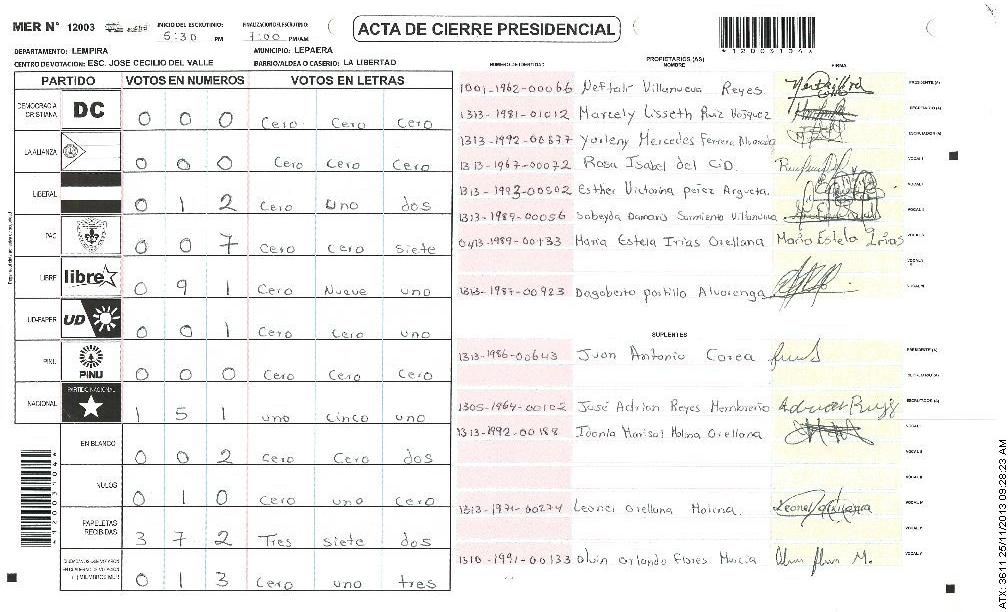 MER N° 12003
INICIO DEL ESCRUTINIO:
5:30 PM
FINALIZACION DEL ESCRUTINIO:
7:00 PM/AM
ACTA DE CIERRE PRESIDENCIAL
DEPARTAMENTO: LEMPIRA
MUNICIPIO: LEPAERA
CENTRO DE VOTACION: ESC. JOSE CECILIO DEL VALLE
BARRIO/ALDEA O CASERIO: LA LIBERTAD
PARTIDO VOTOS EN NUMEROS VOTOS EN LETRAS
DEMOCRACIA CRISTIANA DC 0 0 0 Cero Cero Cero
LA ALIANZA 0 0 0 Cero Cero Cero
LIBERAL 0 1 2 Cero Uno dos
PAC 0 0 7 Cero Cero siete
LIBRE libre 0 9 1 Cero Nueve uno
UD-FAPER UD 0 0 1 Cero Cero uno
PINU PINU 0 0 0 Cero Cero Cero
NACIONAL PARTIDO NACIONAL 1 5 1 uno cinco uno
EN BLANCO 0 0 2 Cero Cero dos
NULOS 0 1 0 Cero uno Cero
PAPELETAS RECIBIDAS 3 7 2 Tres siete dos
0 1 3 Cero uno tres
NUMERO DE IDENTIDAD
PROPIETARIOS (AS)
NOMBRE
FIRMA
1001-1962-00066 Neftalir Villanueva Reyes PRESIDENTE (A)
1313-1981-01012 Marcely Lisseth Ruiz Vásquez SECRETARIO (A)
1313-1992-00877 Yorleny Mercedes Ferrera Alvarado ESCRUTADOR (A)
1313-1967-00072 Rosa Isabel del CiD. VOCAL I
1313-1993-00502 Esther Victoria pérez Argueta.
1313-1989-00056 Sobeyda Damaris Sarmiento Villanueva
0413-1989-00133 Maria Estela Irias Orellana Maria Estela Irias
1313-1987-00923 Dagoberto portillo Alvarenga
SUPLENTES
1313-1986-00643 Juan Antonio Corea PRESIDENTE (A)
SECRETARIO (A)
1305-1964-00102 José Adrian Reyes Membreño ESCRUTADOR (A)
1313-1992-00188 Ivonia Marisol Molina Orellana VOCAL I
VOCAL II
VOCAL III
1313-1971-00274 Leonel Orellana Molina. VOCAL IV
VOCAL V
1310-1991-00133 Olvin Orlando Flores Murcia
ATX: 3611 25/11/2013 09:28:23 AM